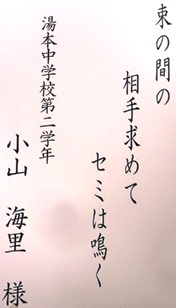 束の間の
相手求めて
セミは鳴く
湯本中学校第二学年
小山 海里 様